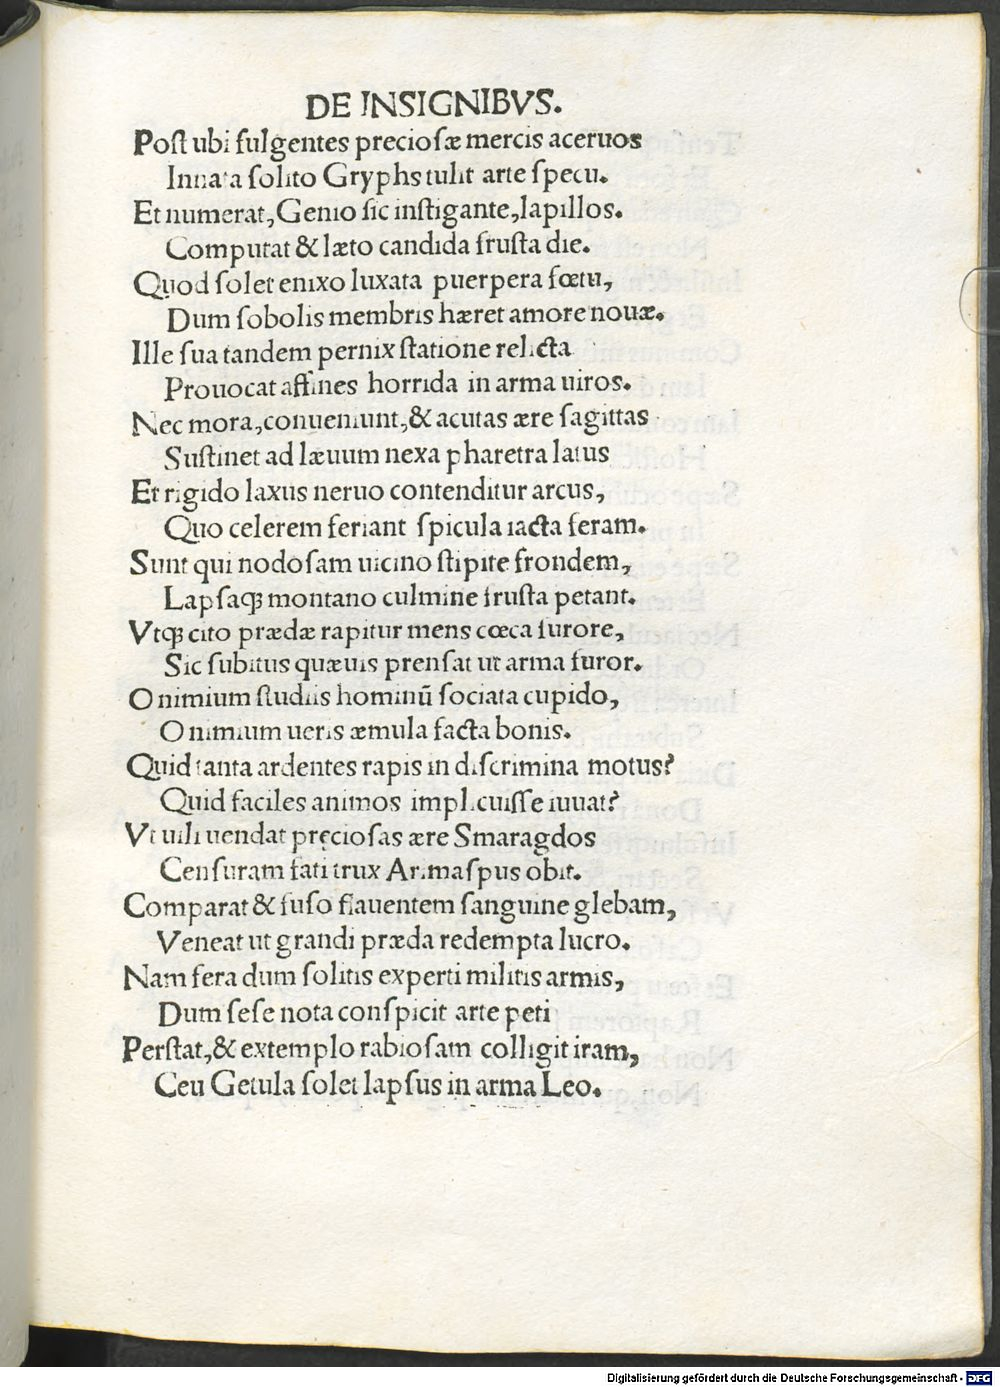 DE INSIGNIBVS.
Poſt ubi fulgentes precioſæ mercis aceruos
Innata ſolito Gryphs tulit arte ſpecu.
Et numerat, Genio ſic inſtigante, lapillos.
Computat & læto candida fruſta die.
Quod ſolet enixo luxata puerpera fœtu,
Dum ſobolis membris hæret amore nouæ.
Ille ſua tandem pernix ſtatione relicta
Prouocat affines horrida in arma uiros.
Nec mora, conueniunt, & acutas ære ſagittas
Suſtinet ad læuum nexa pharetra latus
Et rigido laxus neruo contenditur arcus,
Quo celerem feriant ſpicula iacta feram.
Sunt qui nodoſam uicino ſtipite frondem,
Lapſaqꝫ montano culmine fruſta petant.
Vtqꝫ cito prædæ rapitur mens cœca furore,
Sic ſubitus quæuis prenſat ut arma furor.
O nimium ſtudiis hominū ſociata cupido,
O nimium ueris æmula facta bonis.
Quid tanta ardentes rapis in diſcrimina motus?
Quid faciles animos implicuiſſe iuuat?
Vt uili uendat pręcioſas ære Smaragdos
Cenſuram fati trux Arimaſpus obit.
Comparat & fuſo flauentem ſanguine glebam,
Veneat ut grandi præda redempta lucro.
Nam fera dum ſolitis experti militis armis,
Dum ſeſe nota conſpicit arte peti
Perſtat, & extemplo rabioſam colligit iram,
Ceu Getula ſolet lapſus in arma Leo.
Digitalisierung gefördert durch die Deutsche Forschungsgemeinschaft - DFG